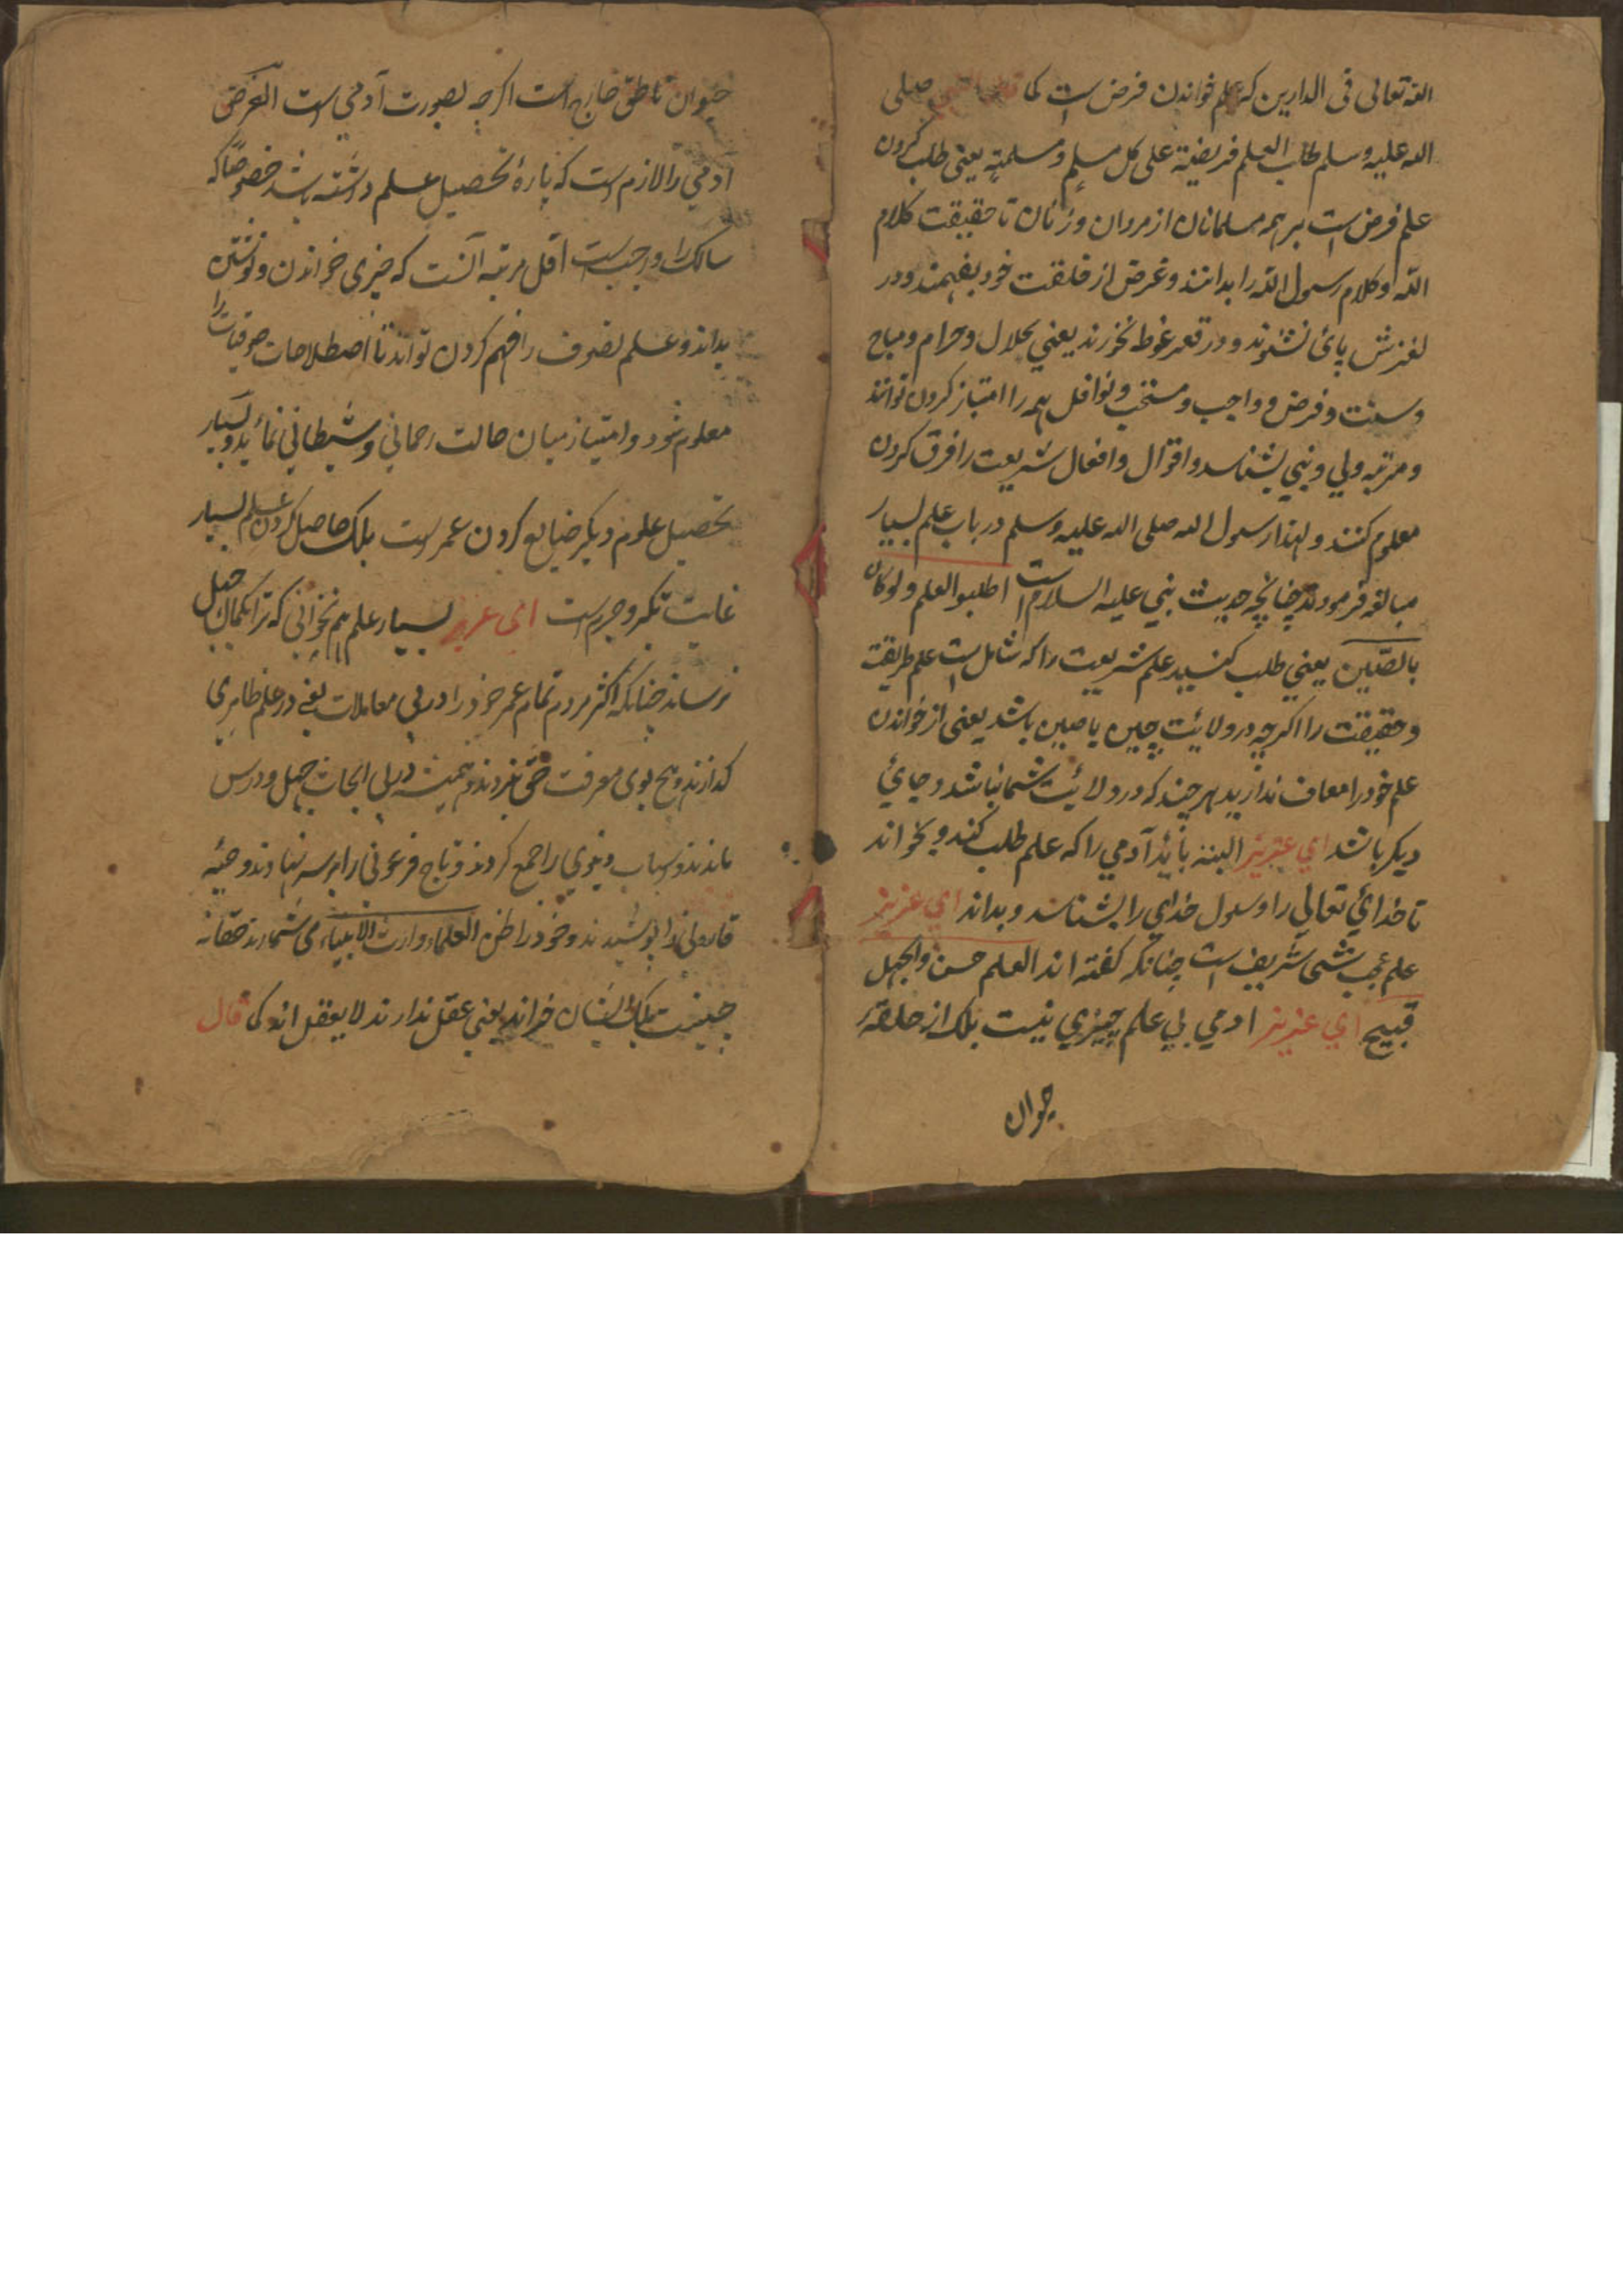 الله تعالی فی الدارین که علم خواندن فرض است کما قال النبی صلی
الله علیه وسلم طلب العلم فریضة علی کل مسلم و مسلمة یعنی طلب کردن
علم فرض است بر همه مسلمانان از مردان و زنان تا حقیقت کلام
الله و کلام رسول الله را بدانند و غرض از خلقت خود بفهمند و در
لغزش پائی نشوند و در قعر غوط نخورند یعنی حلال و حرام و مباح
و سنت و فرض و واجب و مستحب و نوافل همه را امتیاز کردن توانند
و مرتبه ولی و نبی بشناسد و اقوال و افعال شریعت را فرق کردن
معلوم کنند و لهذا رسول الله صلی الله علیه وسلم در باب علم بسیار
مبالغه فرمودند چنانچه حدیث نبی علیه السلام است اطلبوا العلم ولو کان
بالصّین یعنی طلب کنید علم شریعت را که شامل است علم طریقت
و حقیقت را اگرچه در ولایت چین یا صین باشد یعنی از خواندن
علم خود را معاف ندارید هر چند که در ولائیت شما نباشد و جائی
دیگر باشد ای عزیز البته بائد آدمی را که علم طلب کند و بخواند
تا خدائ تعالی را و رسول خدای را بشناسد و بداند ای عزیز
علم عجب شئی شریف است چنانکه گفته اند العلم حسن و الجهل
قبیح ای عزیز ادمی بی علم چیزی نیست بلک از حلقهٔ
حیوان
حیوان ناطق خارج است اگرچه بصورت آدمی است الغرض
آدمی را لازم است که پارهٔ تحصیل علم داشته باشد خصوصًا که
سالک را واجب است اقل مرتبه آنست که چیزی خواندن و نوشتن
بداند و علم تصوف را فهم کردن تواند تا اصطلاحات صوفیات را
معلوم شود و امتیاز میان حالت رحمانی و شیطانی نمائد و بسیار
تحصیل علوم دیگر ضایع کردن عمر است بلک حاصل کردن علم بسیار
غایت تکبر و جرم است ای عزیز بسیار علم هم نخوانی که ترا بکمال جهل
نرساند چنانکه اکثر مردم تمام عمر خود را در پی معاملات یعنی در علم ظاهری
گذارند و هیچ بوی معرفت حق نبردند و همیشه در پی ابحاث جهل و درس
ماندند و اسباب دنیوی را جمع کردند و تاج فرعونی را بر سر نهادند و جبّه
قارونی را پوشیدند و خود را ظن العلماء وارث الانبیاء می شمارند حقا نه
چنینست بلک ایشان خرانند یعنی عقل ندارند لا یعقل اند کما قال